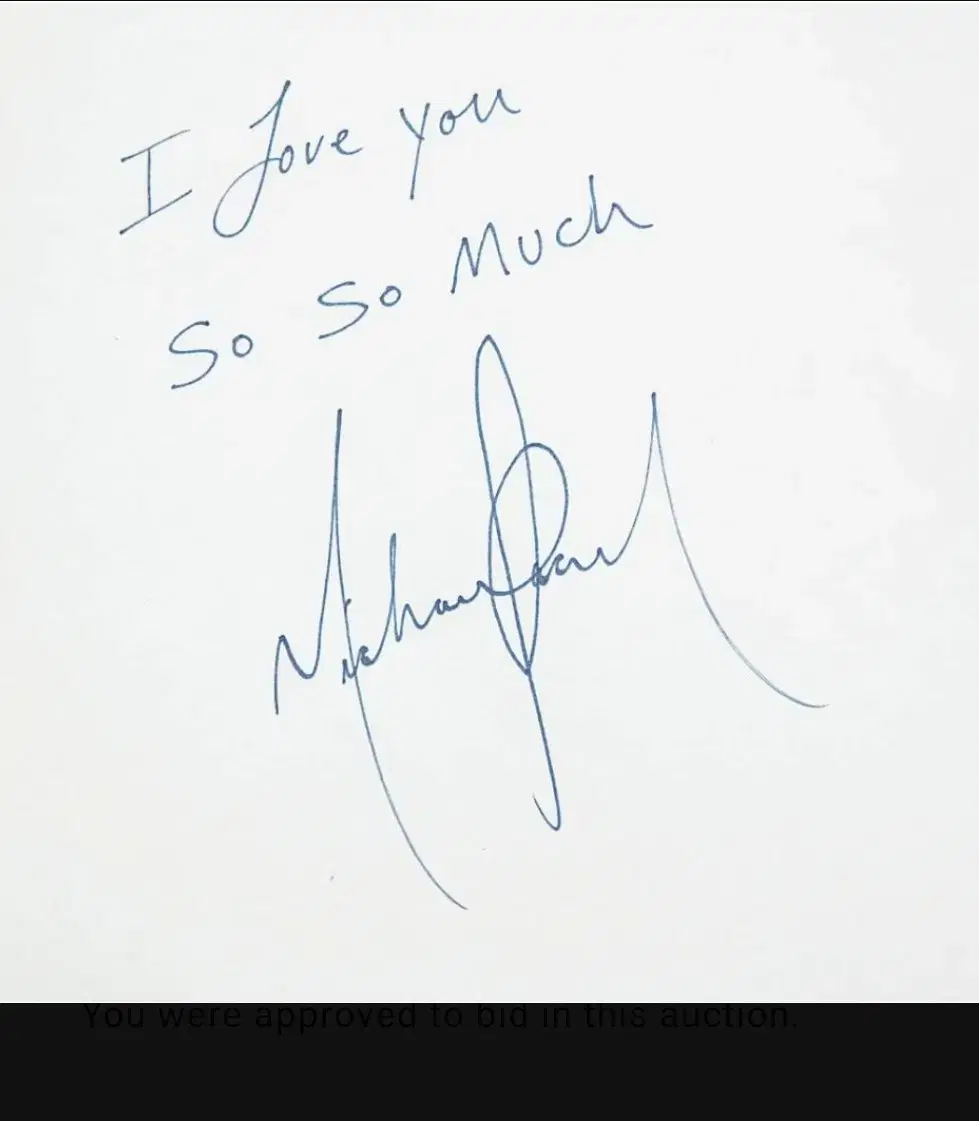 I Love You
So So Much
You were approved to bid in this auction.